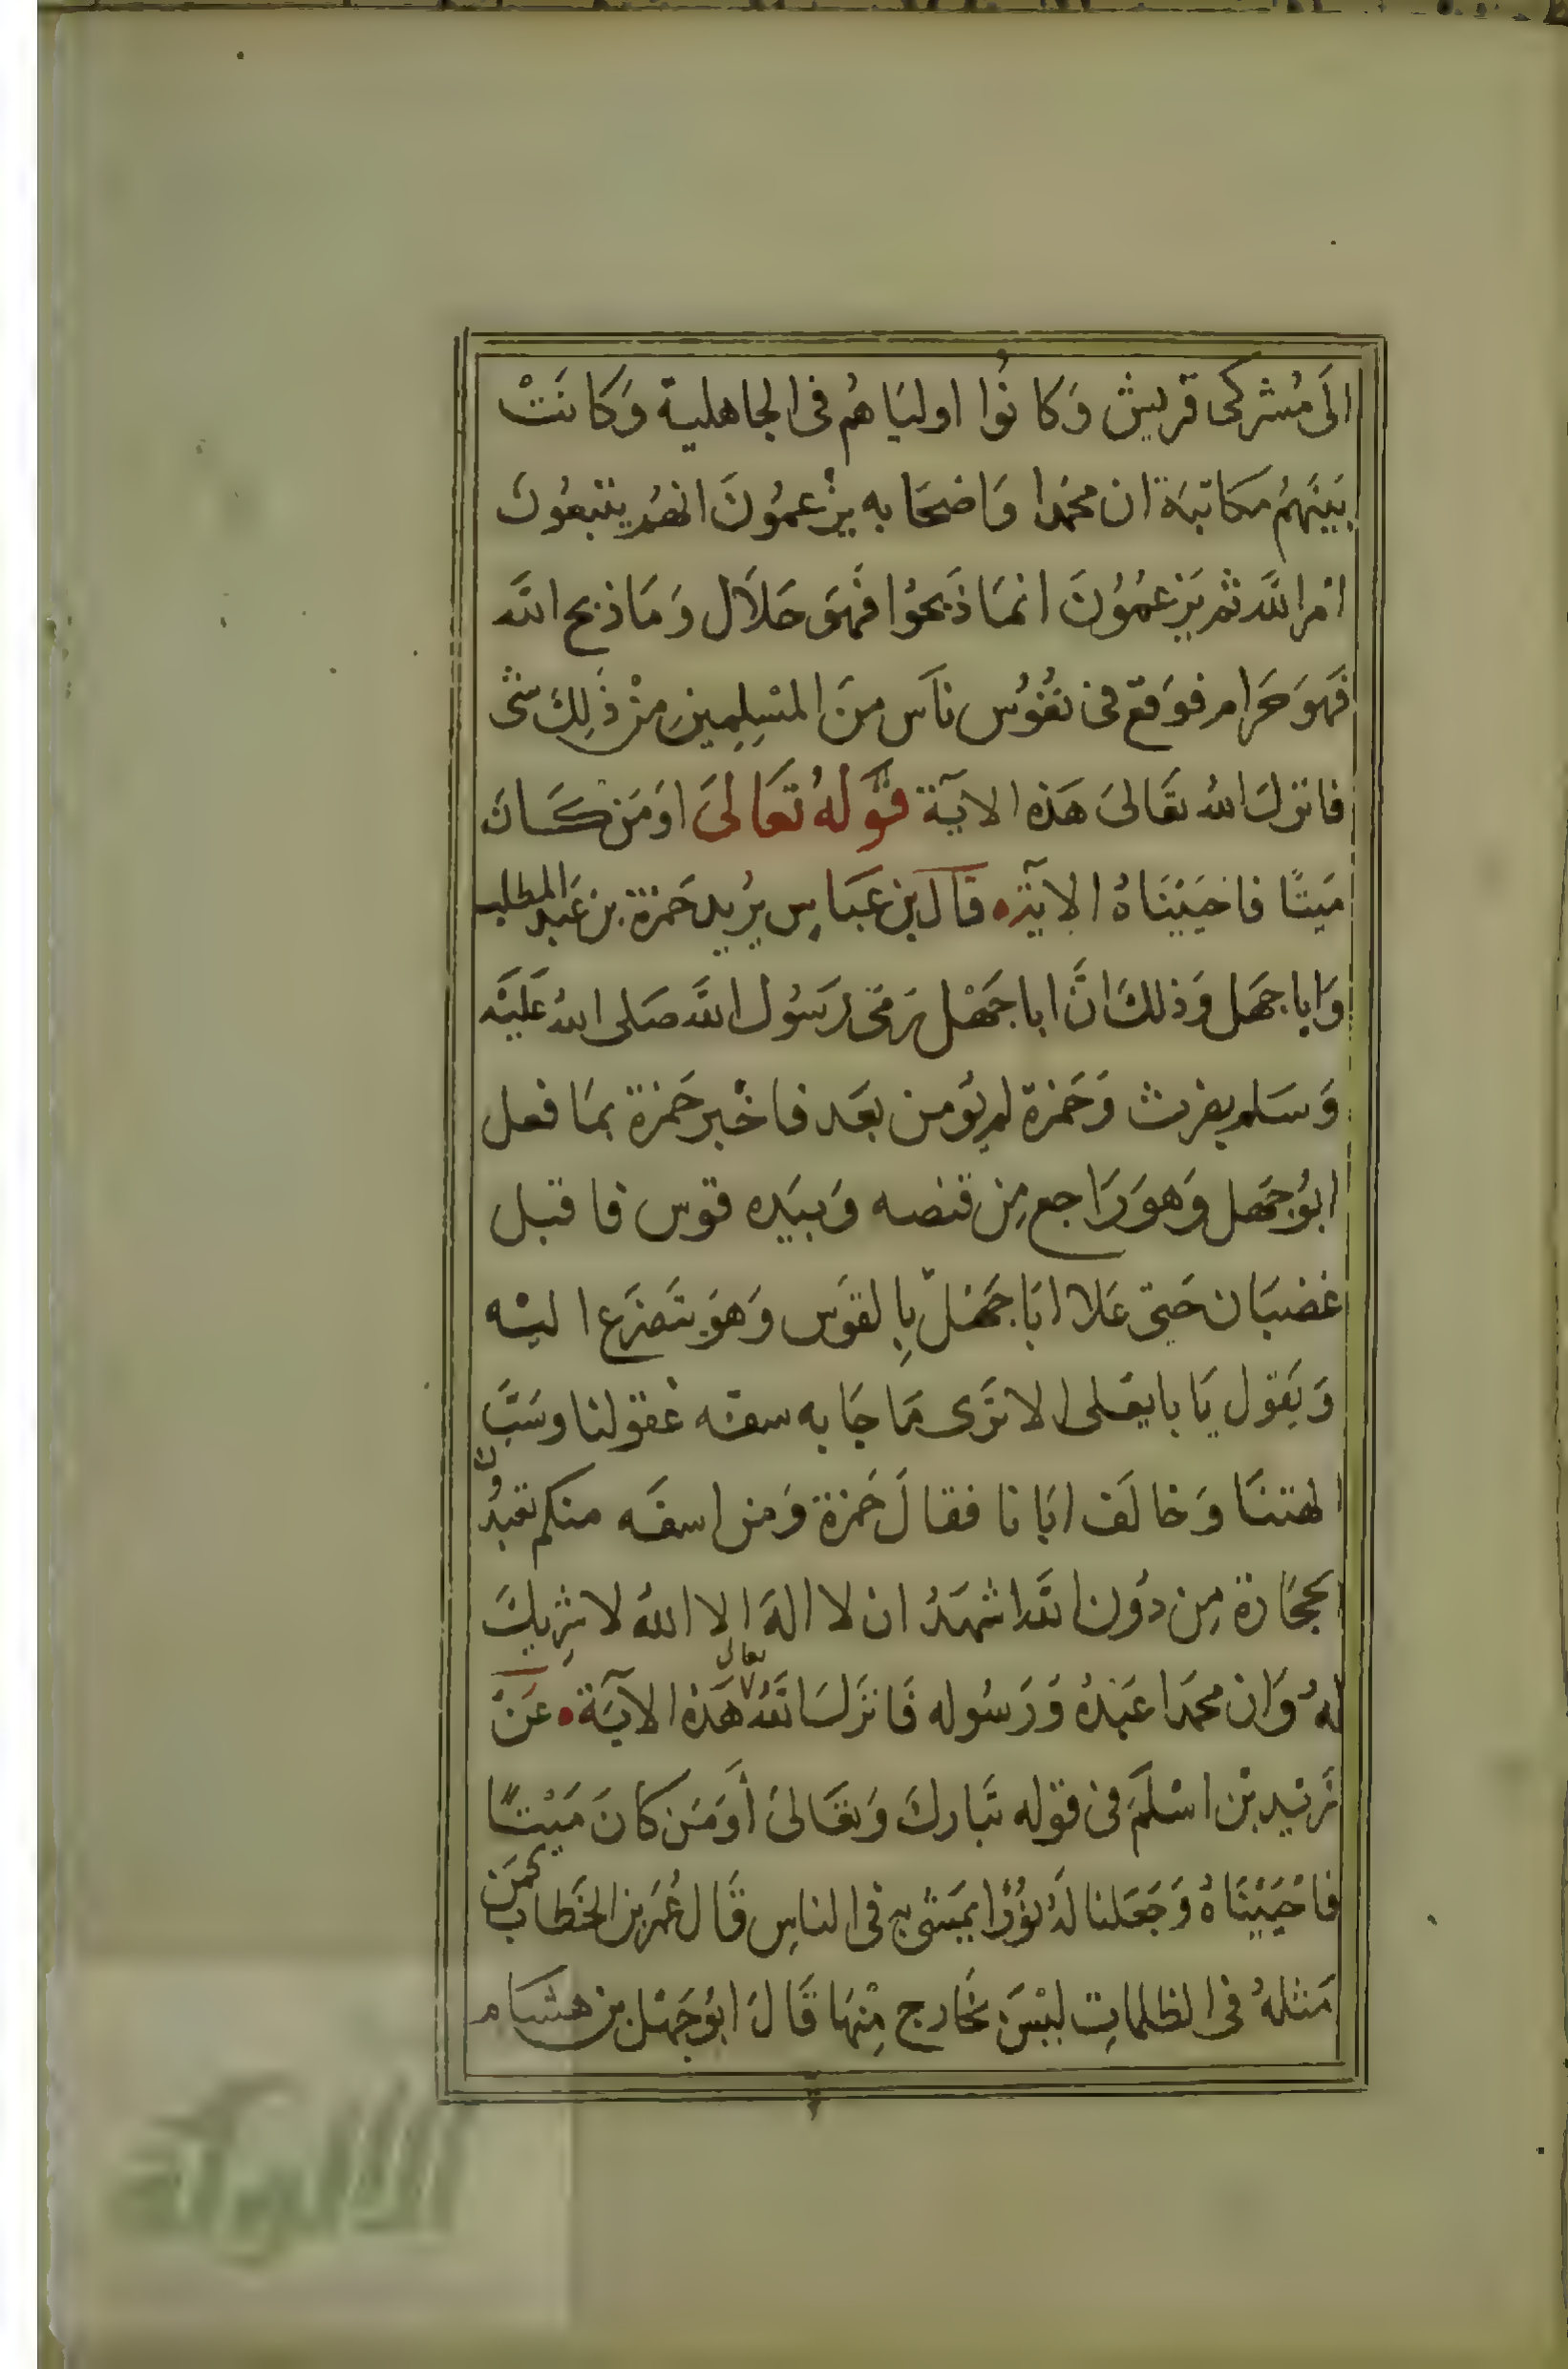 الَى مُشركى قريش وَكانُوا اوليَاهُم فى الجاهلية وَكانَتْ
بَيْنَهُمْ مكَاتبَة ان محمدا وَاصْحَابه يزْعمُونَ انهُم يتبعُونَ
امْرالله ثم يَزعمُوُنَ انمَا ذَبحوُا فَهوَ حَلَال وَمَاذبح الله
فَهوَ حَرَام فوَقع فى نفُوُس ناَس منَ المسْلِمِينِ مِنْ ذَلِكَ شئ
فانزلَ اللهُ تعَالىَ هَذه الايَة قَوْلهُ تعَالىَ اوَمَن كَانَ
مَيتًا فاحيَيْنَاهُ الايَة قالَ بن عَبَاسٍ يرُيد حَمزة بن عَبدالمطلب
وَاباجهَل وَذلكَ انَّ اباجَهْل رَمَى رَسُول الله صَلى اللهُ عَليَه
وَسَلم بفرث وَحَمزة لم يؤمن بعَد فاخْبر حَمزة بمَا فعل
ابوُجَهل وَهوَ رَاجع مِن قنصه وَبيَده قوس فاقبل
غضبَان حَتى عَلا ابَاجَهْل بِالقوَس وَهوَ يتَضرَع اليْه
وَيَقول يَا بايعَلى الا ترَى مَا جَا به سفه عُقولنا وسَبَّ
الهتنَا وَخالَف ابَانا فقالَ حَمزة وَمن اسفَه منكم تعَبدُون
الحجَارة مِن دُون الله اشهَدُ ان لا الهَ الا اللهُ لا شرِيكَ
لهُ وَان محمَدا عَبْدهُ وَرَسُوله فَانزَلَ اللهُ تعالى هَذه الايَة عَنْ
زَيْد بْن اسْلَمَ فى قوله تَبارك وَتعَالىَ أوَمَن كانَ مَيْتًا
فاحْيَيْنَاهُ وَجَعَلنا لَهُ نوُرًا يمَشى به فى الناسِ قَال عُمَر بن الخَطاب كمَن
مَثلهُ فى الظلماتِ ليْسَ بخَارج مِنْهَا قَالَ ابوُجَهْل بن هشَام
الألوكة